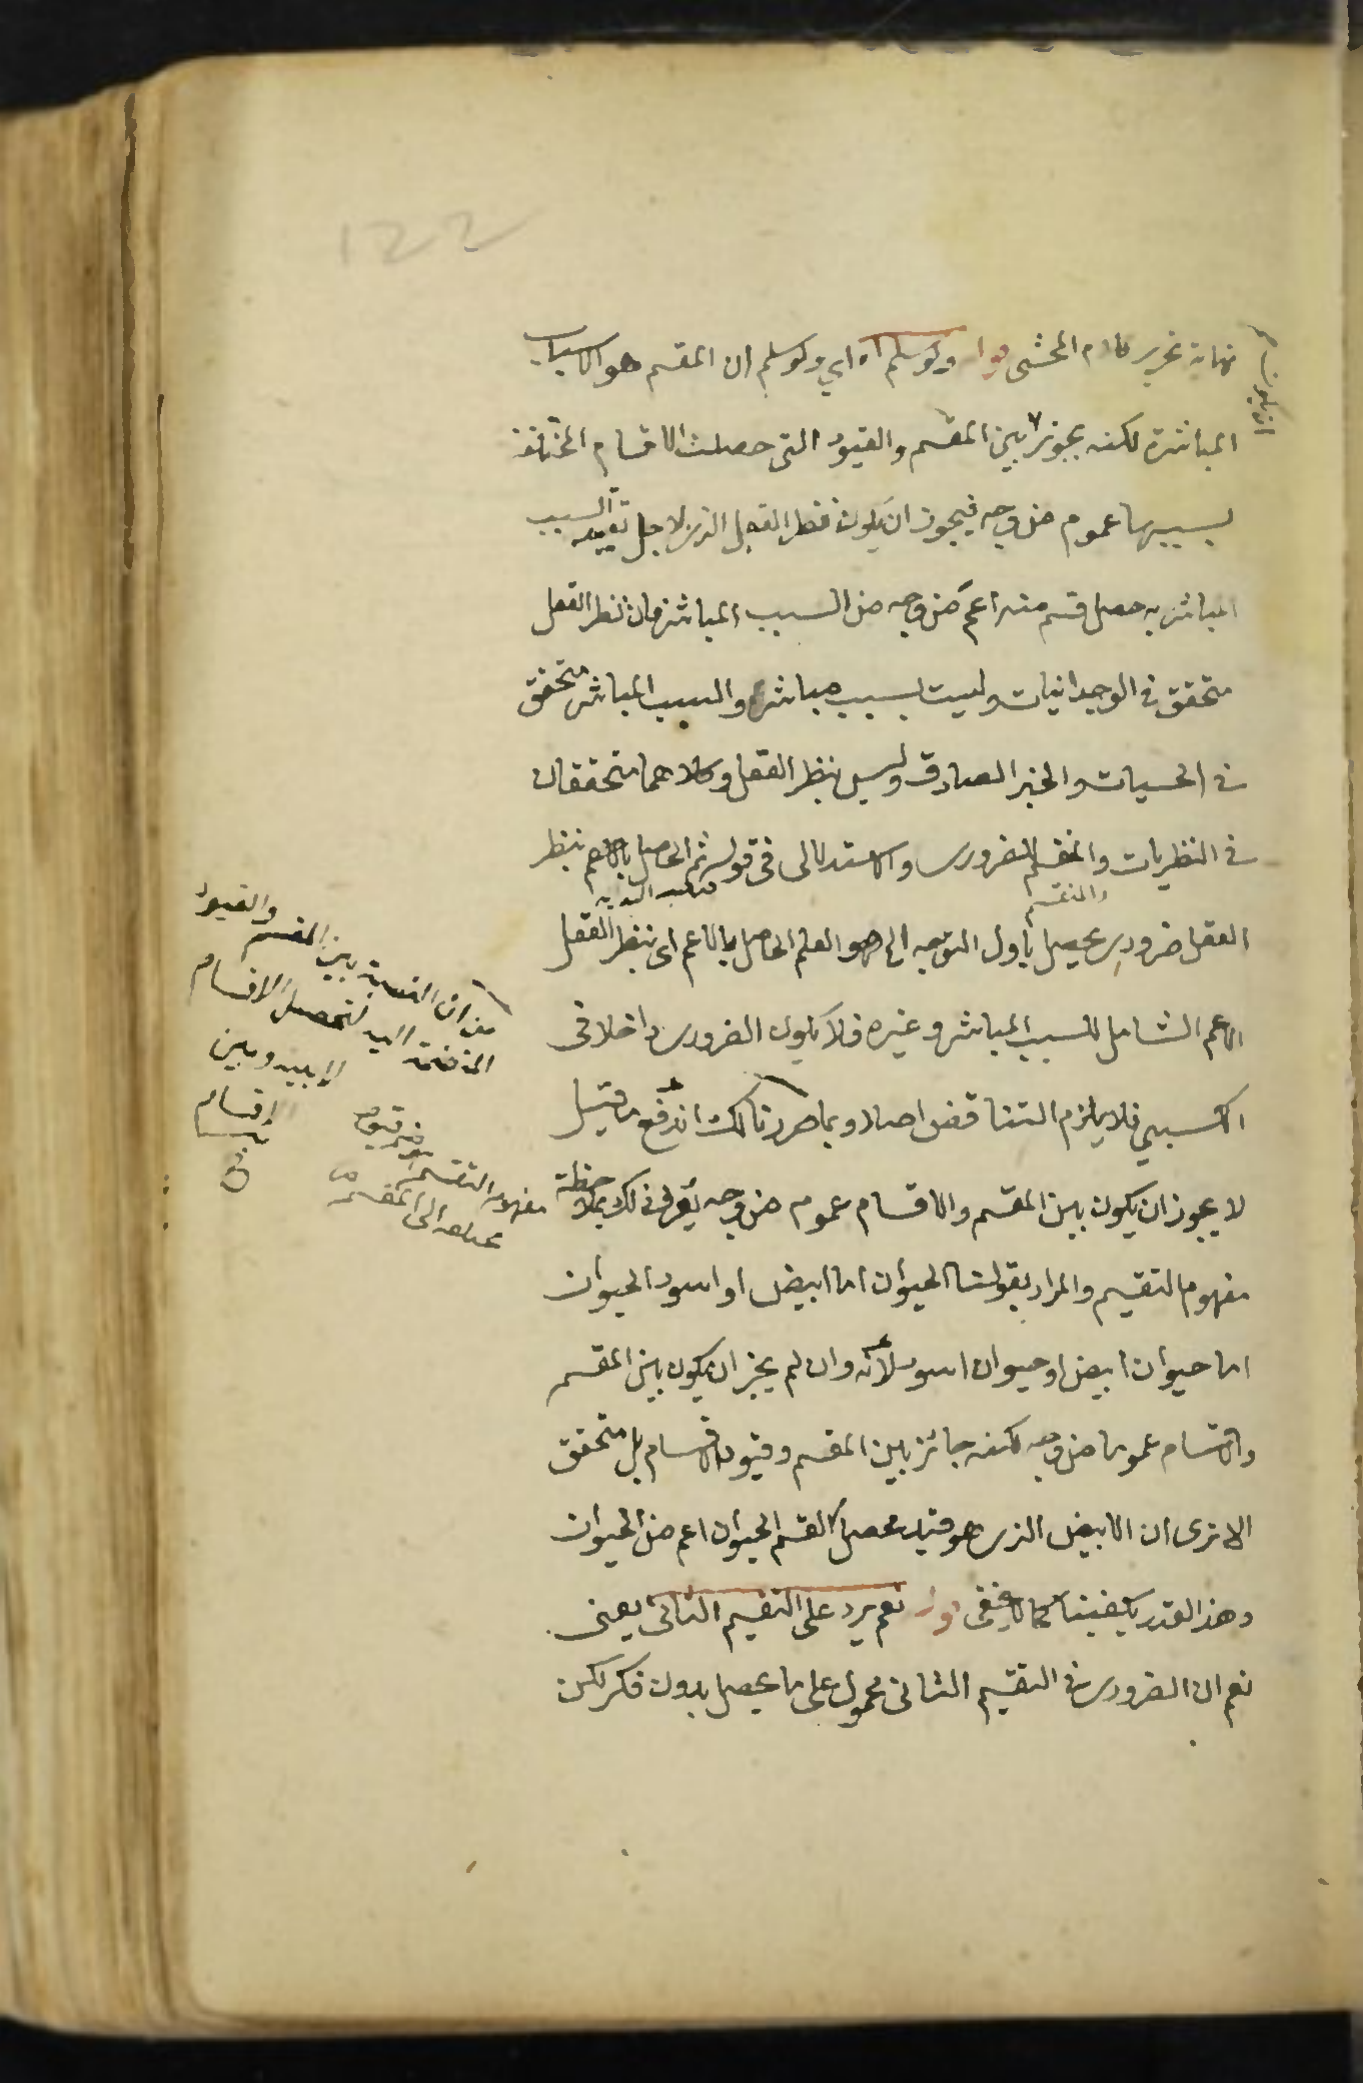 122
نهاية تحرير كلام المحشي قوله ولو سلم اه اي ولو سلم ان المقسم هو الاسباب
المباشرة لكنه يجوز بين المقسم والقيود التى حصلت الاقسام المختلفة
بسببها عموم من وجه فيجوز ان يكون نظر العقل الذى لاجل تقييد السبب
المباشر به حصل قسم منه اعم من وجه من السبب المباشر فان نظر العقل
متحقق فى الوجدانيات وليست بسبب مباشر والسبب المباشر متحقق
فى الحسيات والخبر الصادق وليس بنظر العقل وكلاهما متحققان
فى النظريات والمنقسم للضرورى والاستدلالى فى قوله ثم الحاصل بنظر
والمنقسم
العقل ضرورى يحصل بأول التوجه الخ هو العلم الحاصل بالاعم اى بنظر العقل
الاعم الشامل للسبب المباشر وغيره فلا يكون الضرورى داخلا فى
الكسبي فلا يلزم التناقض اصلا وبما حررنا لك اندفع ما قيل
لا يجوز ان يكون بين المقسم والاقسام عموم من وجه يعرف ذلك بملاحظة
مفهوم التقسيم والمراد بقولنا الحيوان اما ابيض او اسود الحيوان
اما حيوان ابيض او حيوان اسود لانه وان لم يجز ان يكون بين المقسم
والاقسام عموما من وجه لكنه جائز بين المقسم وقيود الاقسام بل متحقق
الا ترى ان الابيض الذى هو قيد محصل لقسم الحيوان اعم من الحيوان
وهذا القدر يكفينا كما لا يخفى قوله نعم يرد على التقسيم الثانى يعنى
نعم ان الضرورى فى التقسيم الثانى محمول على ما يحصل بدون فكر لكن
من ان النسبة بين المقسم والقيود
اليه لتحصيل الاقسام
لا بينه وبين
الاقسام
مفهوم التقسيم
الى المقسم